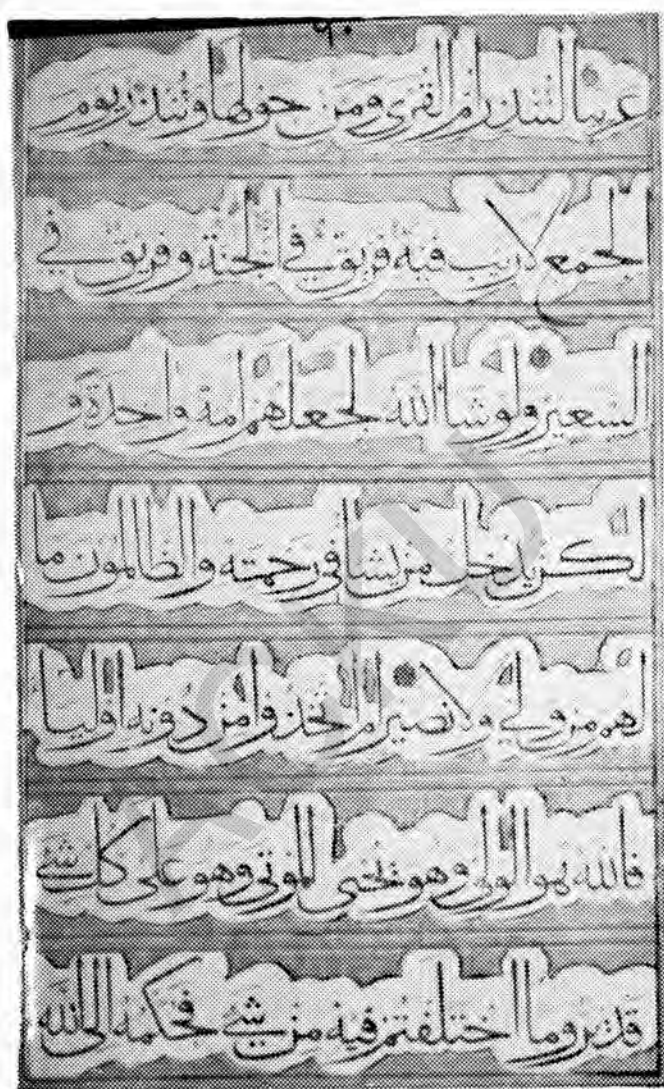 ٩٠
عربيا لتنذر ام القرى ومن حولها وتنذر يوم
الجمع لا ريب فيه فريق في الجنة وفريق في
السعير ولو شا الله لجعلهم امة واحدة و
لكن يدخل من يشا في رحمته والظالمون ما
لهم من ولي ولا نصير ام اتخذوا من دونه اوليا
فالله هو الولي وهو يحيي الموتى وهو على كل شيء
قدير وما اختلفتم فيه من شيء فحكمه الى الله